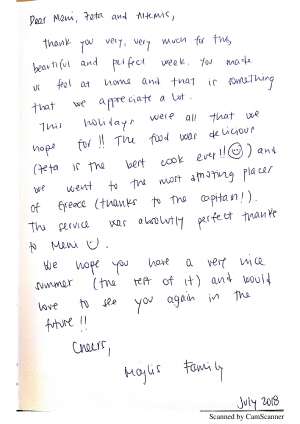 Dear Meni, Zeta and Artemis,
Thank you very, very much for this
beautiful and perfect week. You made
us feel at home and that is something
that we appreciate a lot.
This holidays were all that we
hope for!! The food was delicious
(Zeta is the best cook ever!!) and
we went to the most amazing places
of Greece (thanks to the capitan!).
The service was absolutly perfect thanks
to Meni
We hope you have a very nice
summer (the rest of it) and would
love to see you again in the
future!!
Cheers,
Family
July 2018
Scanned by CamScanner